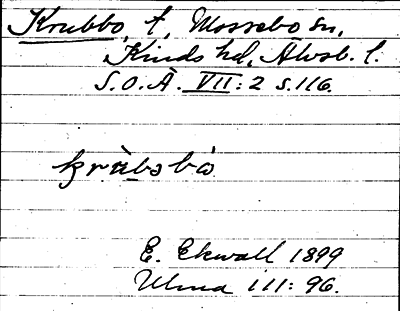 Krubbo, t, Mossebo sn,
Kinds hd, Älvsb. l.
S.O.Ä. VII: 2 s. 116.
krùbsbò
E. Ekwall 1899
Ulma 111: 96.